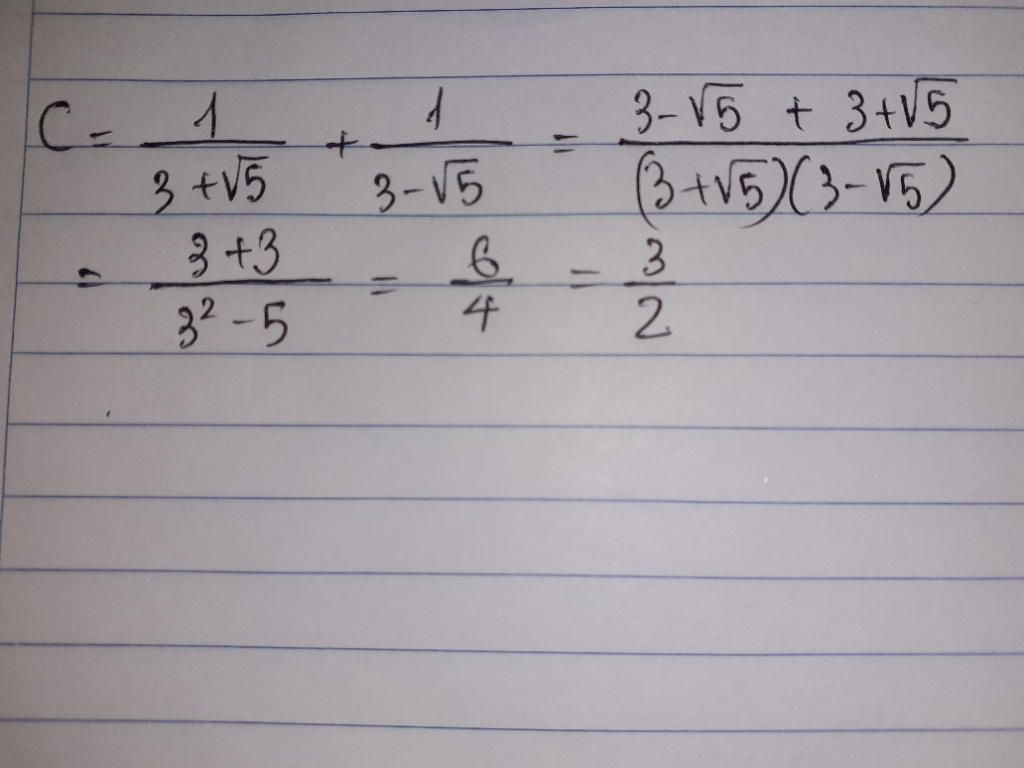 C = 1/(3+√5) + 1/(3-√5) = (3-√5 + 3+√5)/((3+√5)(3-√5))
= (3+3)/(3²-5) = 6/4 = 3/2